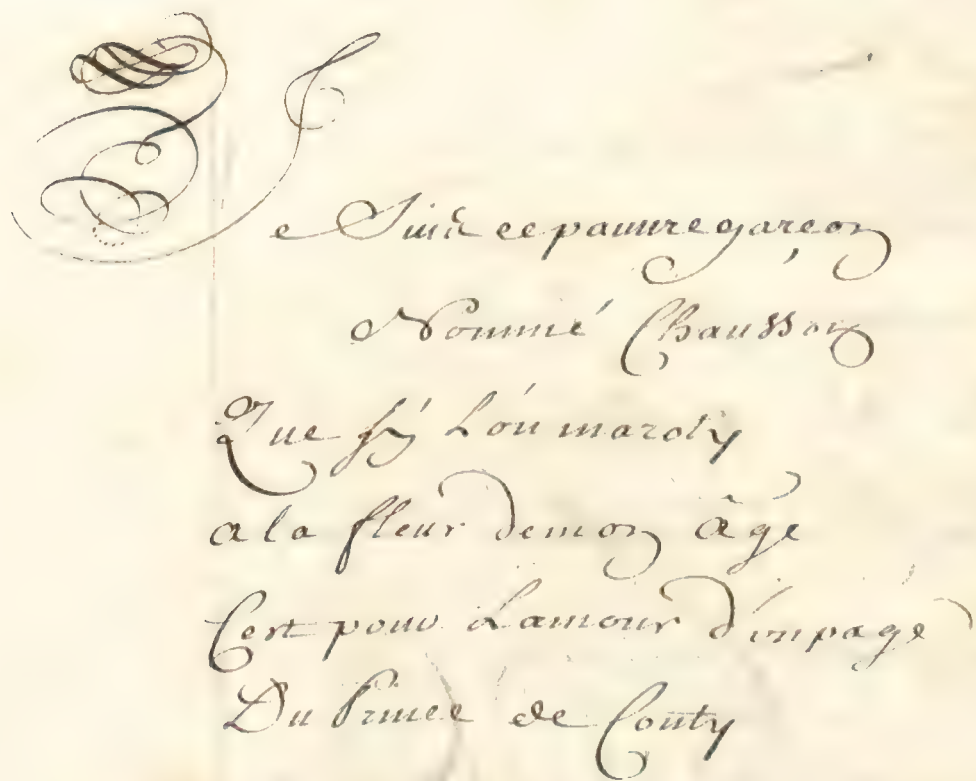 Je Suis ce pauure garçon
Nommé Chausson
Que sy L'on ma roty
a la fleur de mon âge
C'est pour L'amour d'un page
Du Prince de Conty